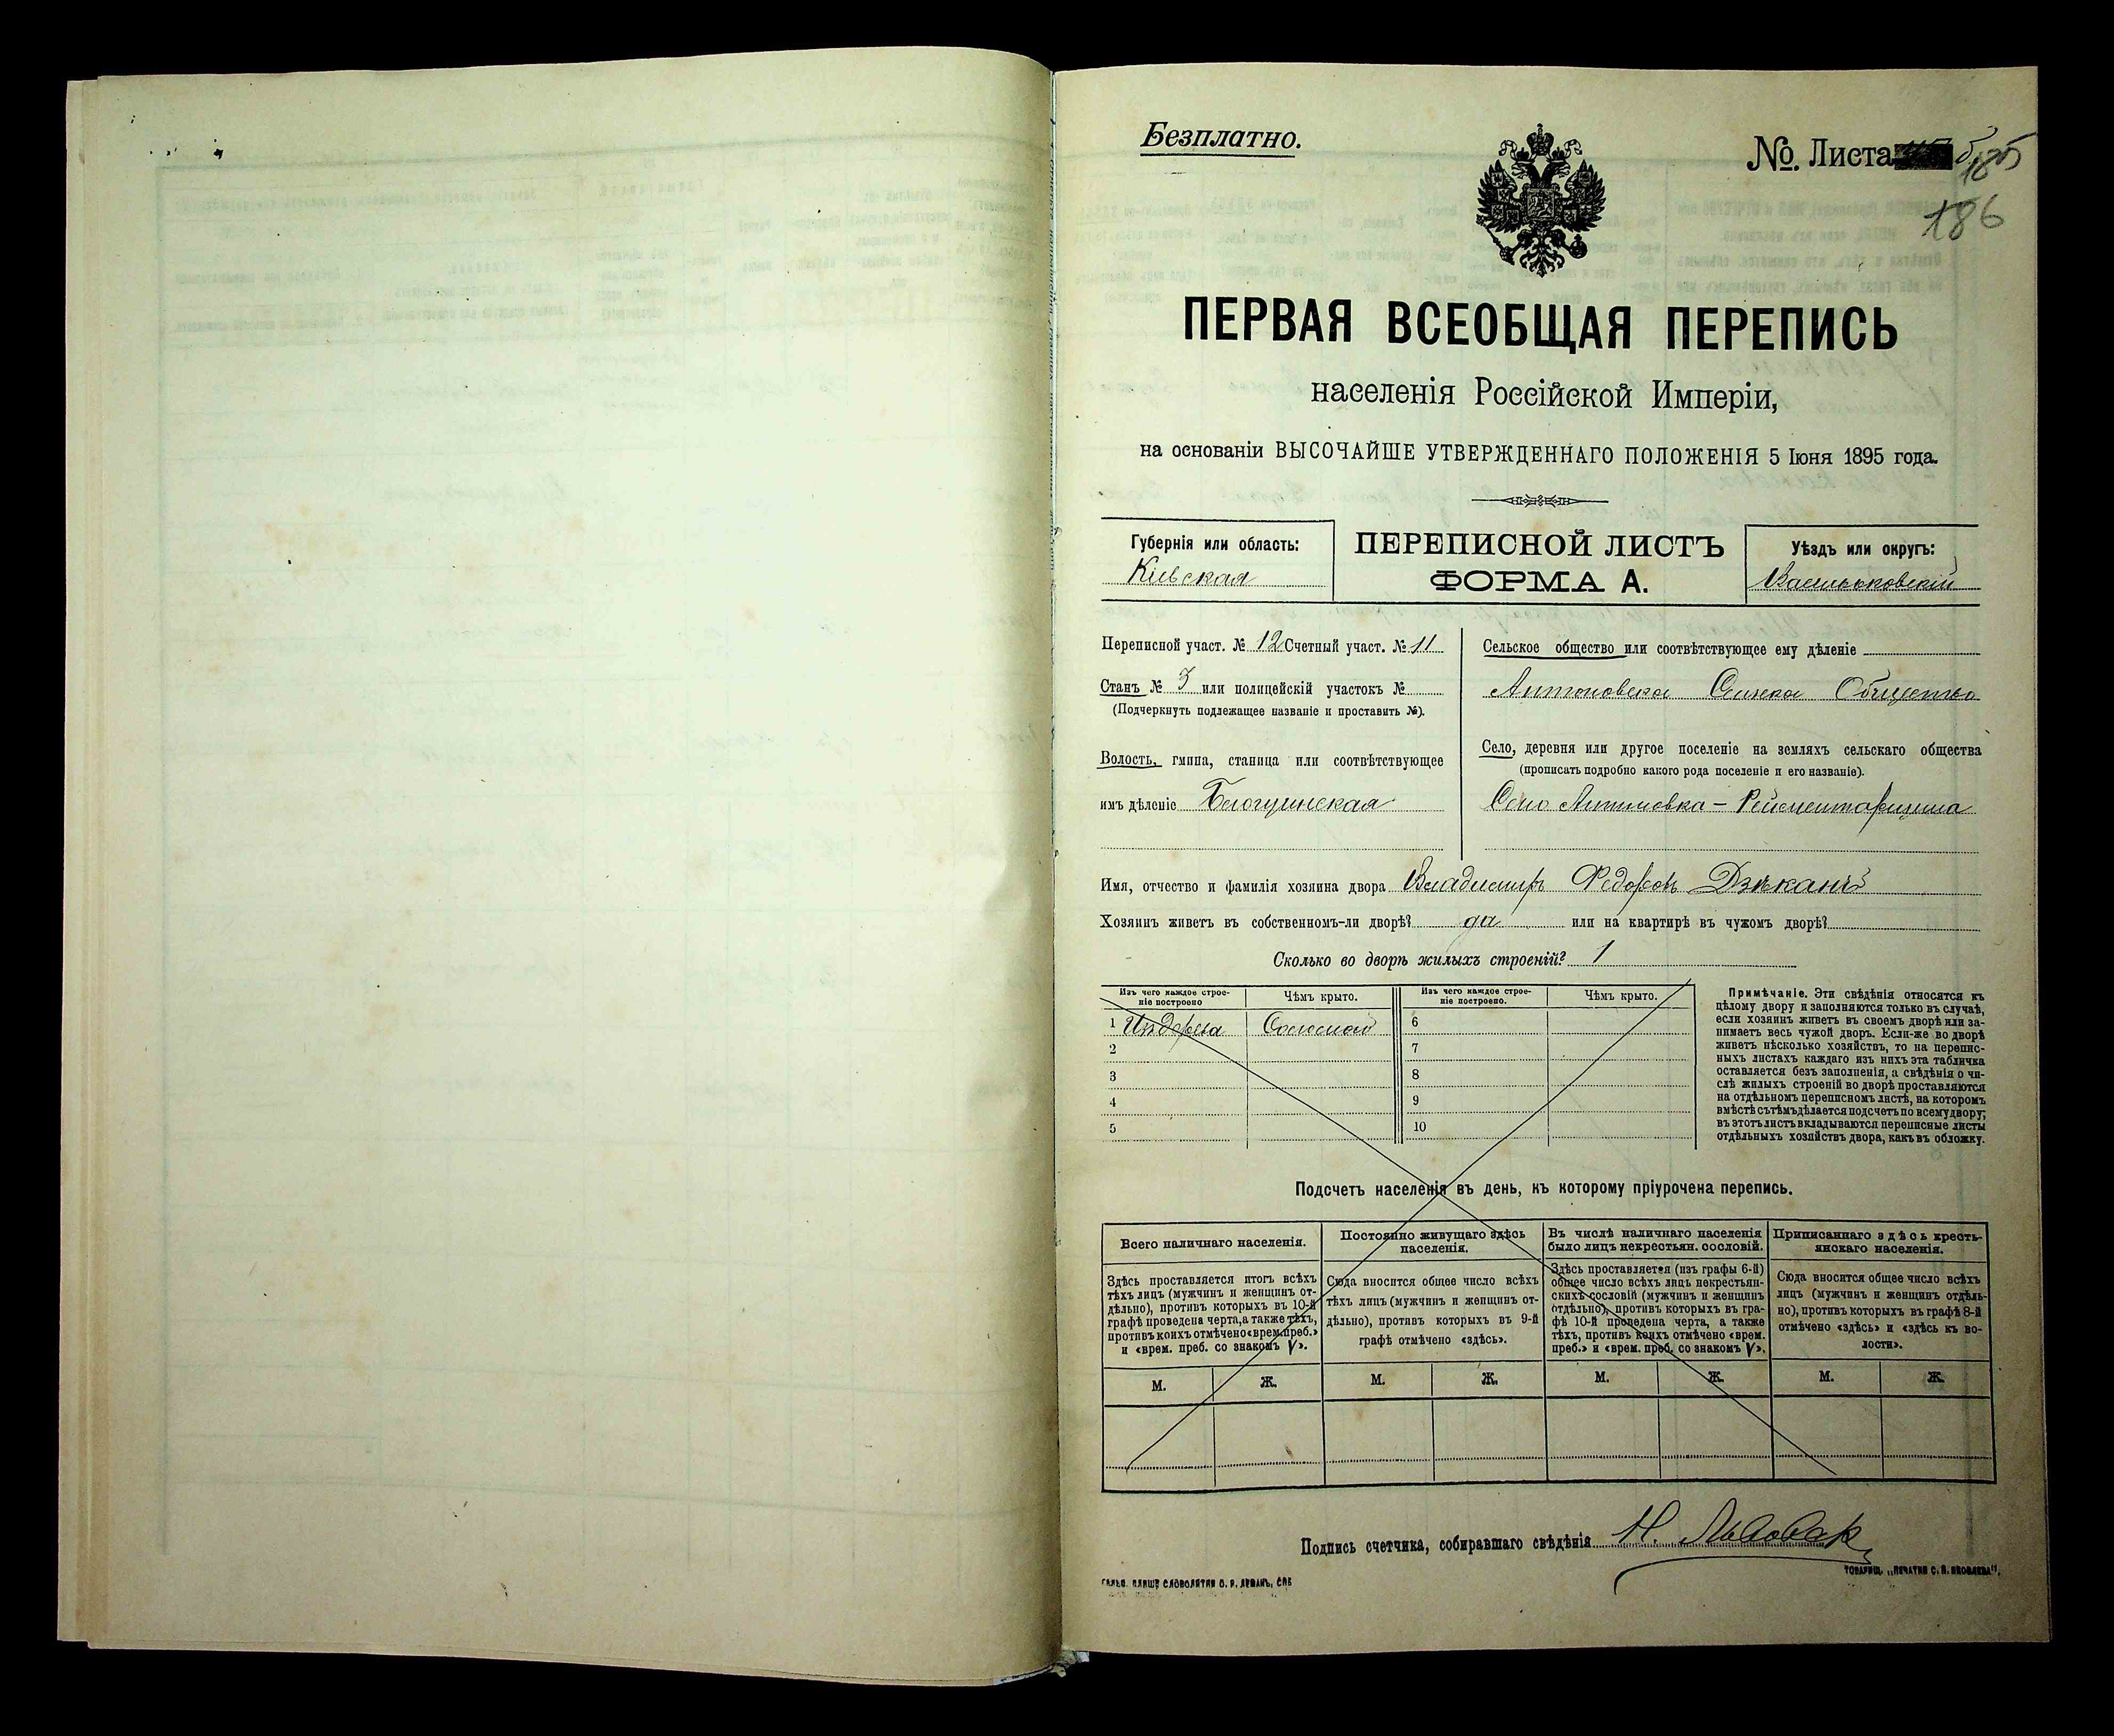 Безплатно.
№. Листа
185
186
ПЕРВАЯ ВСЕОБЩАЯ ПЕРЕПИСЬ
населенія Россійской Имперіи,
на основаніи ВЫСОЧАЙШЕ УТВЕРЖДЕННАГО ПОЛОЖЕНІЯ 5 Іюня 1895 года.
Губернія или область:
Кіевская
ПЕРЕПИСНОЙ ЛИСТЪ
ФОРМА А.
Уѣздъ или округъ:
Васильковскій
Переписной участ. № 12 Счетный участ. № 11
Станъ № 3 или полицейскій участокъ №
(Подчеркнуть подлежащее названіе и проставить №).
Волость, гмина, станица или соотвѣтствующее
имъ дѣленіе
Сельское общество или соотвѣтствующее ему дѣленіе
Антоновска Общество
Село, деревня или другое поселеніе на земляхъ сельскаго общества
(прописать подробно какого рода поселеніе и его названіе).
Село Антоновка – Рейментарщина
Имя, отчество и фамилія хозяина двора Владимиръ Федоровъ
Хозяинъ живетъ въ собственномъ-ли дворѣ? да или на квартирѣ въ чужомъ дворѣ?
Сколько во дворѣ жилыхъ строеній? 1
Изъ чего каждое строе-
ніе построено
Чѣмъ крыто.
Изъ чего каждое строе-
ніе построено.
Чѣмъ крыто.
1 Издерева Соломой
2
3
4
5
6
7
8
9
10
Примѣчаніе. Эти свѣдѣнія относятся къ
цѣлому двору и заполняются только въ случаѣ,
если хозяинъ живетъ въ своемъ дворѣ или за-
нимаетъ весь чужой дворъ. Если-же во дворѣ
живетъ нѣсколько хозяйствъ, то на перепис-
ныхъ листахъ каждаго изъ нихъ эта табличка
оставляется безъ заполненія, а свѣдѣнія о чи-
слѣ жилыхъ строеній во дворѣ проставляются
на отдѣльномъ переписномъ листѣ, на которомъ
вмѣстѣ съ тѣмъ дѣлается подсчетъ по всему двору;
въ этотъ листъ вкладываются переписные листы
отдѣльныхъ хозяйствъ двора, какъ въ обложку.
Подсчетъ населенія въ день, къ которому пріурочена перепись.
Всего наличнаго населенія.
Здѣсь проставляется итогъ всѣхъ
тѣхъ лицъ (мужчинъ и женщинъ от-
дѣльно), противъ которыхъ въ 10-й
графѣ проведена черта, а также тѣхъ,
противъ коихъ отмѣчено «врем. преб.»
и «врем. преб. со знакомъ V».
Постоянно живущаго здѣсь
населенія.
Сюда вносится общее число всѣхъ
тѣхъ лицъ (мужчинъ и женщинъ от-
дѣльно), противъ которыхъ въ 9-й
графѣ отмѣчено «здѣсь».
Въ числѣ наличнаго населенія
было лицъ некрестьян. сословій.
Здѣсь проставляется (изъ графы 6-й)
общее число всѣхъ лицъ некрестьян-
скихъ сословій (мужчинъ и женщинъ
отдѣльно), противъ которыхъ въ гра-
фѣ 10-й проведена черта, а также
тѣхъ, противъ коихъ отмѣчено «врем.
преб.» и «врем. преб. со знакомъ V».
Приписаннаго здѣсь кресть-
янскаго населенія.
Сюда вносится общее число всѣхъ
лицъ (мужчинъ и женщинъ отдѣль-
но), противъ которыхъ въ графѣ 8-й
отмѣчено «здѣсь» и «здѣсь къ во-
лости».
М. Ж. М. Ж. М. Ж. М. Ж.
Подпись счетчика, собиравшаго свѣдѣнія Н.
ТОВАРИЩ. „ПЕЧАТНЯ С. П. ЯКОВЛЕВА".